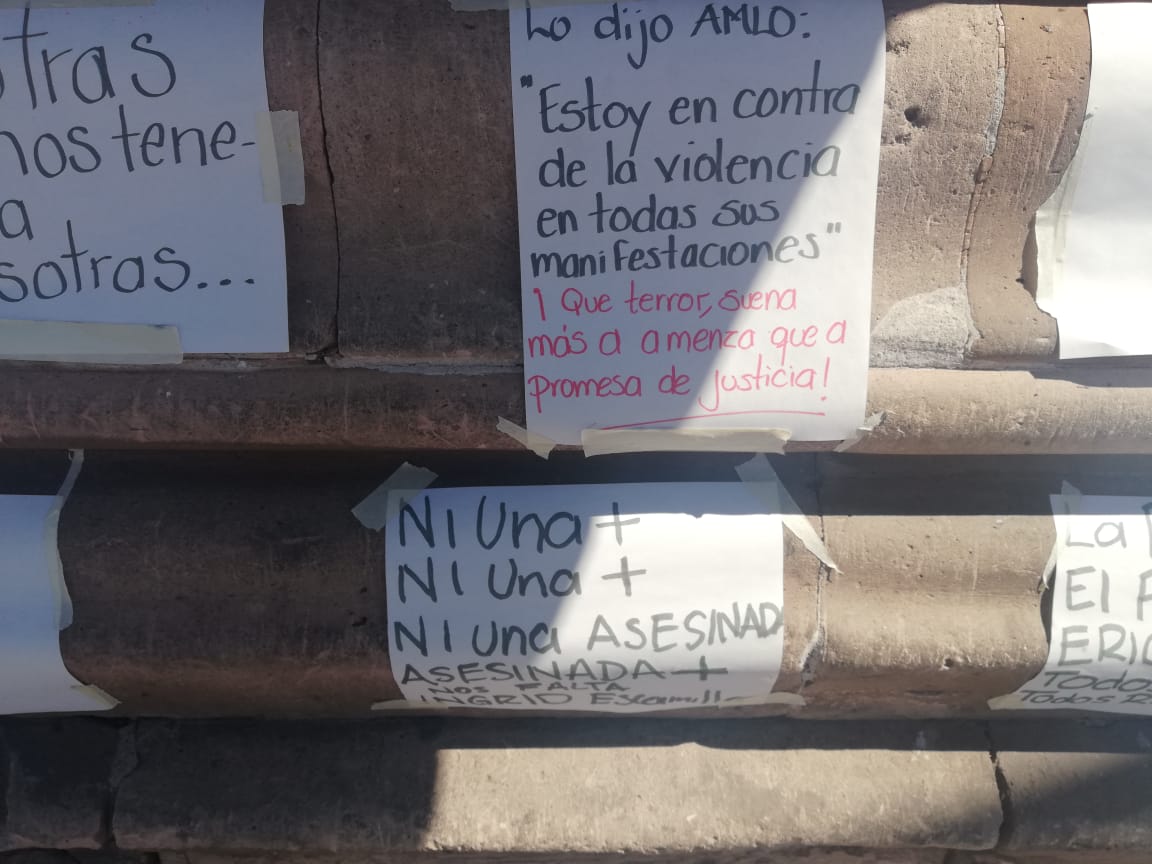 tras
nos tene-
a
sotras...
Lo dijo AMLO:
"Estoy en contra
de la violencia
en todas sus
manifestaciones"
¡ Que terror, suena
más a amenza que a
promesa de justicia!
Ni Una +
Ni Una +
Ni Una ASESINAD
ASESINADA +
NOS FALTA
INGRID Escamill
La
El
ERIC
TODO
Todos